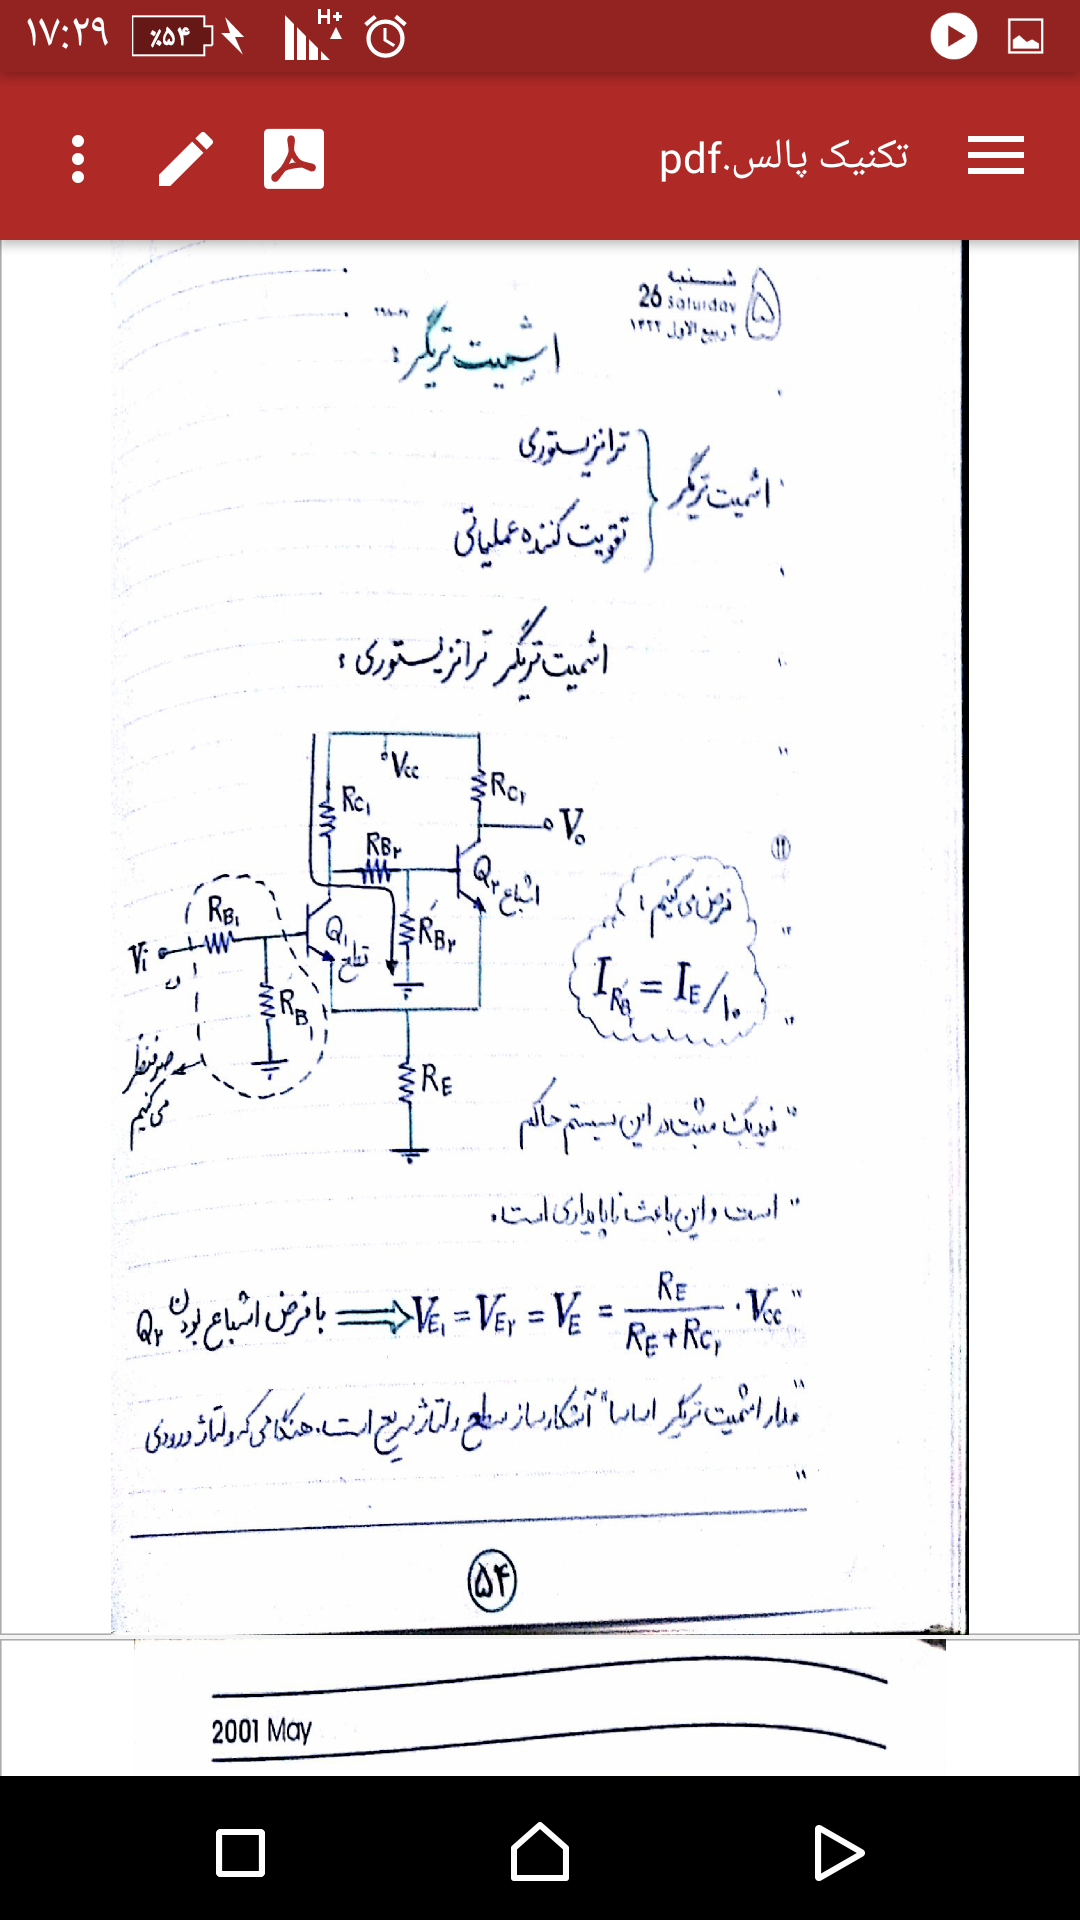 ۱۷:۲۹ ٪۵۴ H+
تکنیک پالس.pdf
شنبه
26 Saturday
۲ ربیع الاول ۱۴۲۲
۵
اشمیت تریگر :
اشمیت تریگر { ترانزیستوری
تقویت کننده عملیاتی
اشمیت تریگر ترانزیستوری :
Vcc
RC۱
RC۲
Vo
RB۲
Q۲
اشباع
RB۱
Vi
Q۱
قطع
R'B۲
R'B
RE
صرفنظر
می‌کنیم
فرض می‌کنیم :
IR'B۲ = IE/۱۰
فیدبک مثبت در این سیستم حاکم
است و این باعث ناپایداری است.
با فرض اشباع بودن Q۲ ⟹ VE۱ = VE۲ = VE = RE / (RE + RC۲) · Vcc
مدار اشمیت تریگر اساسا" آشکارساز سطح ولتاژ سریع است. هنگامی که ولتاژ ورودی
۵۴
2001 May